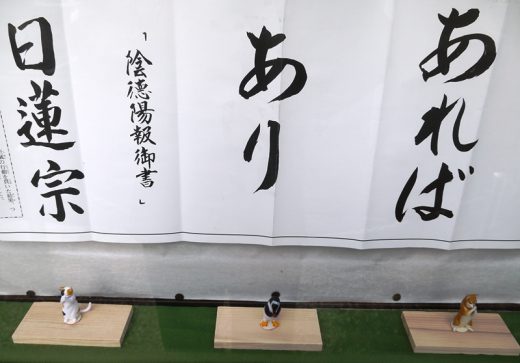 あれば
あり
「陰徳陽報御書」
日蓮宗